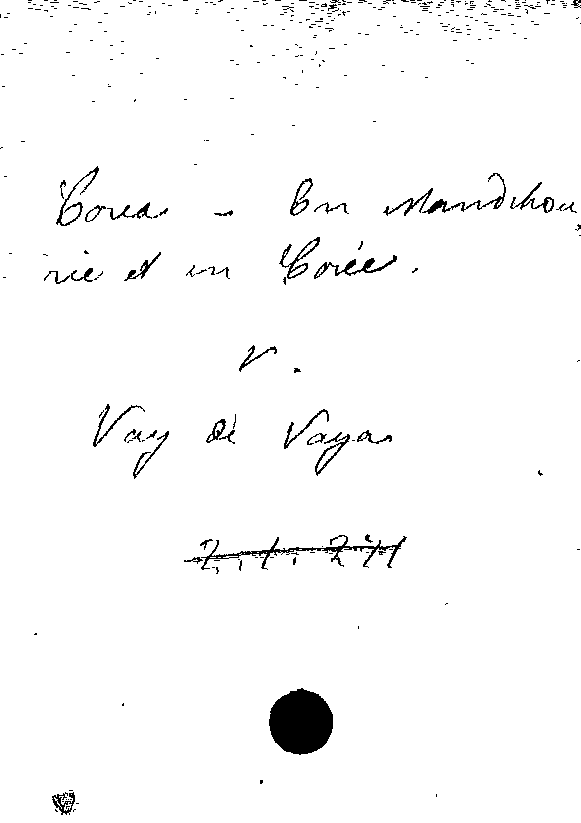 Corea - En Mandchou
rie et en Corée.
V.
Vay de Vaya